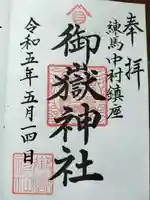 奉拝
練馬中村鎮座
御嶽神社
令和五年五月一四日